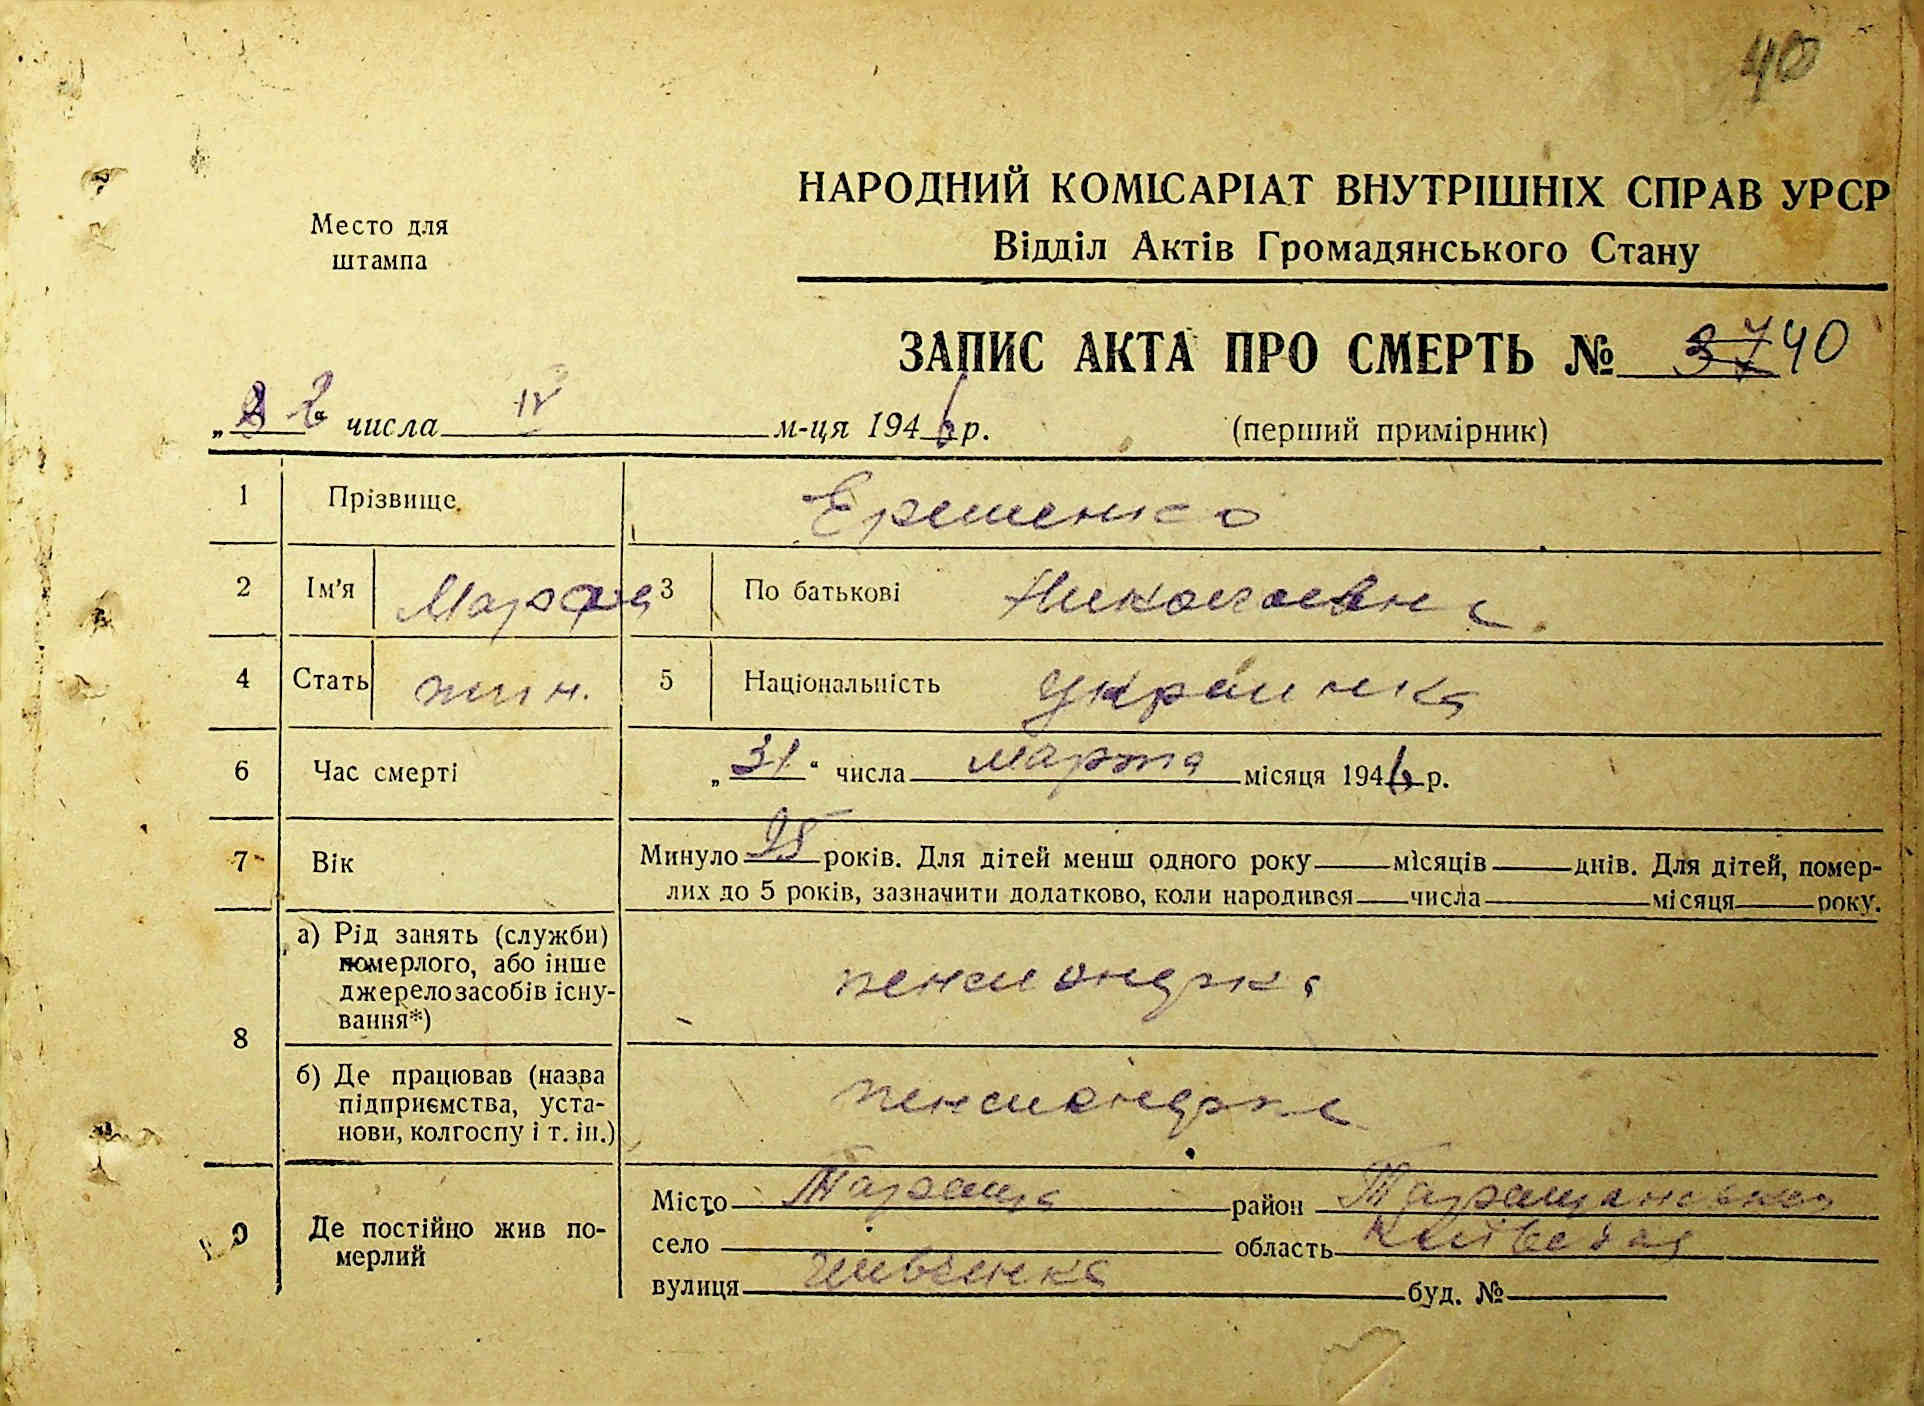 40
НАРОДНИЙ КОМІСАРІАТ ВНУТРІШНІХ СПРАВ УРСР
Відділ Актів Громадянського Стану
Место для
штампа
ЗАПИС АКТА ПРО СМЕРТЬ № 37 40
„ 2 " числа IV м-ця 1946 р. (перший примірник)
1 Прізвище Ерешенко
2 Ім'я Марфа 3 По батькові Николаевна
4 Стать жін. 5 Національність украинка
6 Час смерті „31" числа марта місяця 1946 р.
7 Вік Минуло 95 років. Для дітей менш одного року місяців днів. Для дітей, помер-
лих до 5 років, зазначити додатково, коли народився числа місяця року.
8 а) Рід занять (служби)
померлого, або інше
джерело засобів існу-
вання*)
пенсионерка
б) Де працював (назва
підприємства, уста-
нови, колгоспу і т. ін.)
пенсионерка
9 Де постійно жив по-
мерлий
Місто Тараща район Таращанский
село область Киевская
вулиця Шевченка буд. №